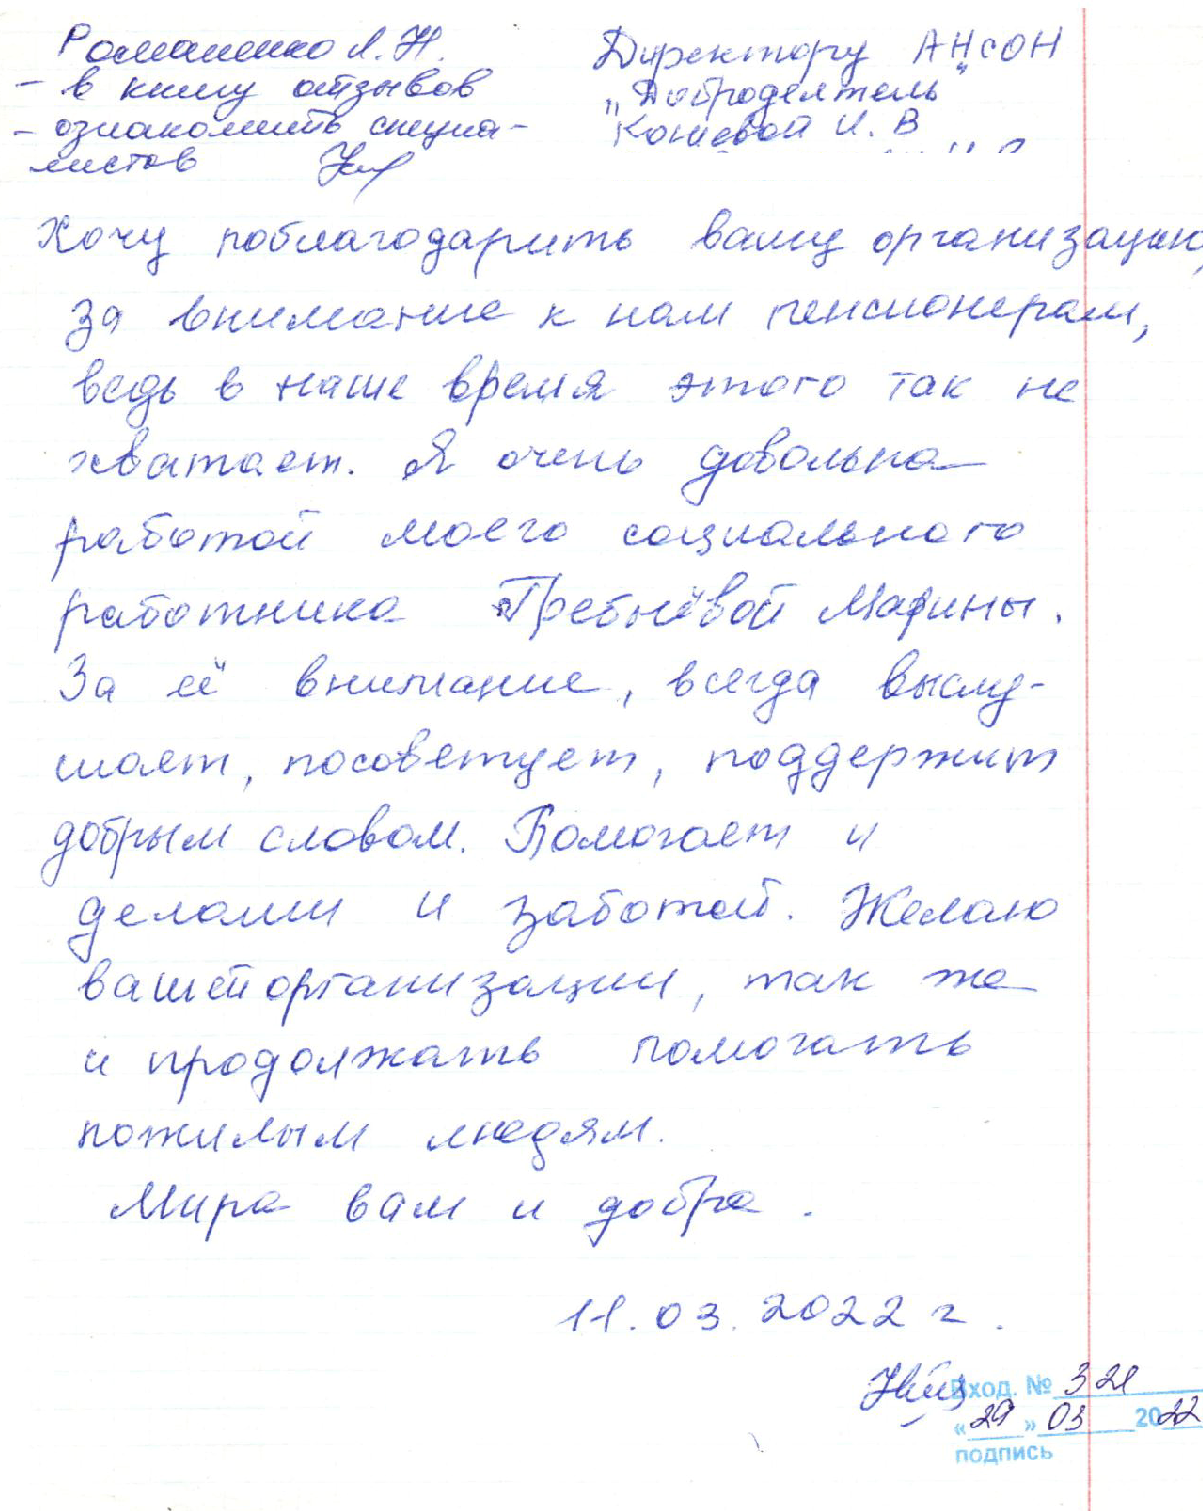 Романенко Л. Н.
- в книгу отзывов
- ознакомить специа-
листов
Директору АНСОН
„Добродетель"
Конševой И. В
Хочу поблагодарить вашу организацию,
за внимание к нам пенсионерам,
ведь в наше время этого так не
хватает. Я очень довольна
работой моего социального
работника Гребнёвой Марины.
За её внимание, всегда выслу-
шает, посоветует, поддержит
добрым словом. Помогает и
делами и заботой. Желаю
вашей организации, так же
и продолжать помогать
пожилым людям.
Мира вам и добра.
11.03.2022 г.
Вход. № 321
«29» 03 2022
подпись